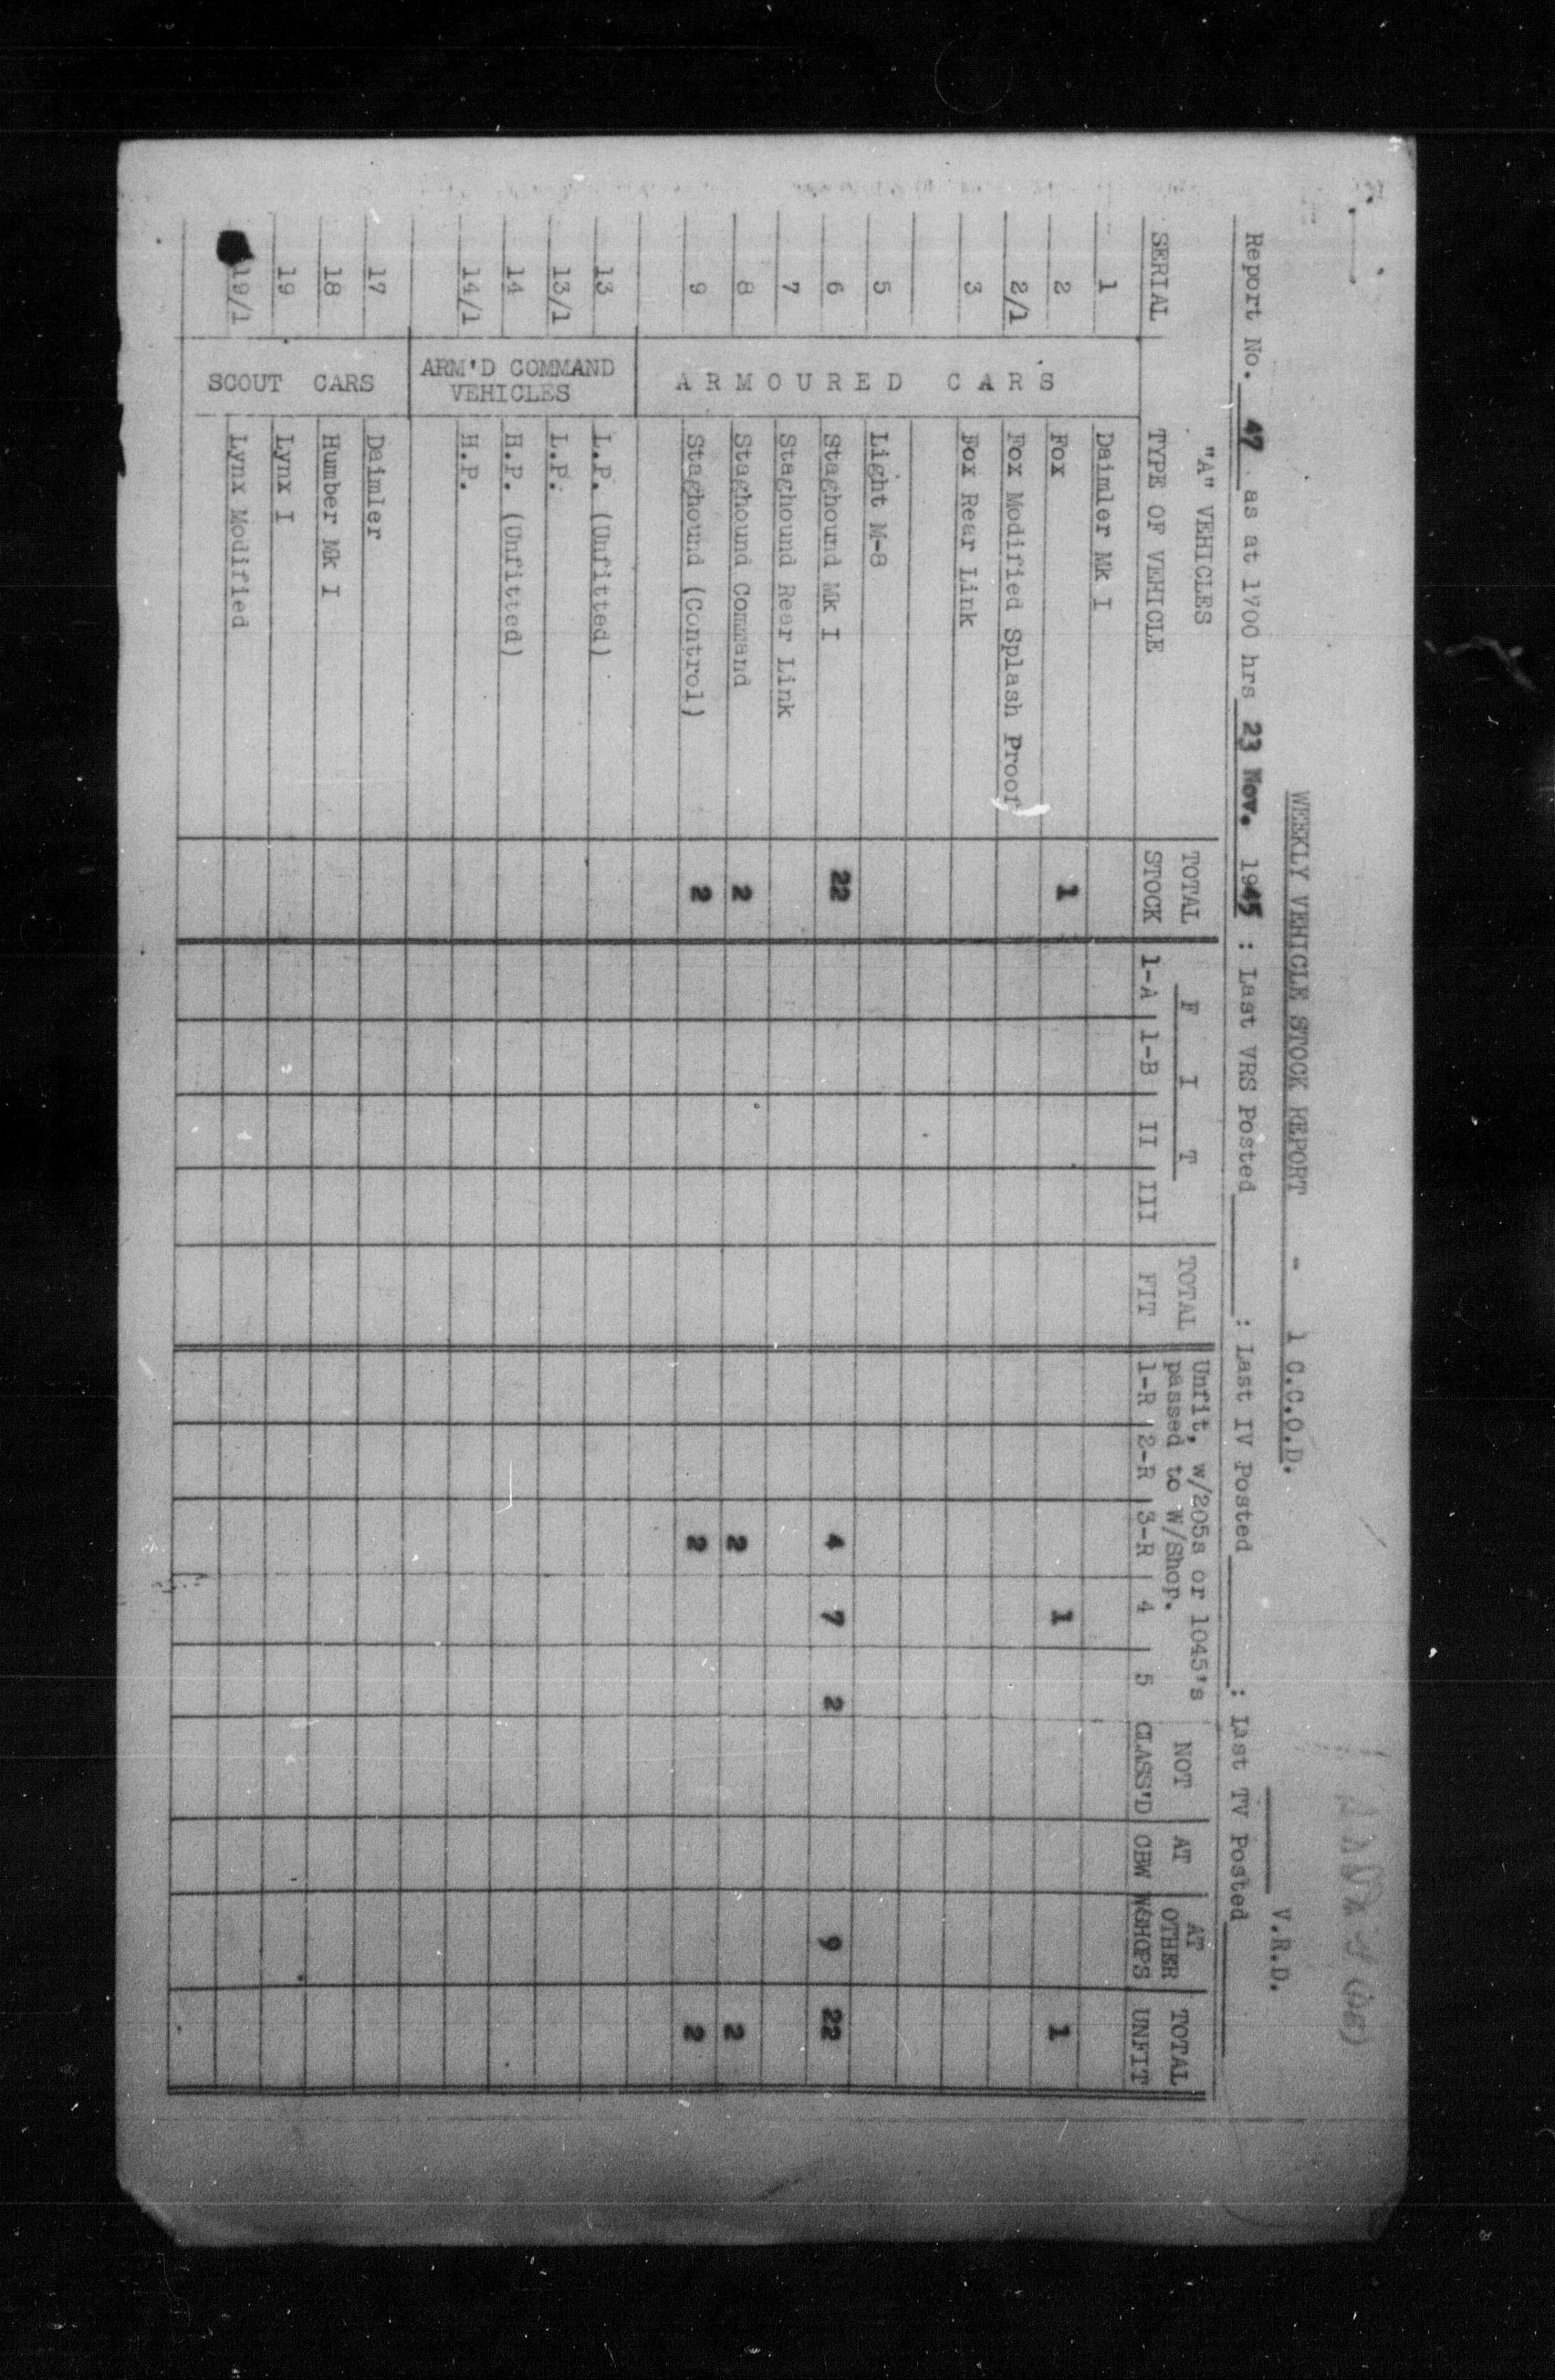 WEEKLY VEHICLE STOCK REPORT - 1 C.C.O.D.
V.R.D.
Report No. 47 as at 1700 hrs 23 Nov. 1945 : Last VRS Posted : Last IV Posted : Last TV Posted
"A" VEHICLES
TOTAL F I T TOTAL Unfit, w/205s or 1045's NOT AT AT OTHER TOTAL
passed to W/Shop.
SERIAL TYPE OF VEHICLE STOCK 1-A 1-B II III FIT 1-R 2-R 3-R 4 5 CLASS'D CBW W/SHOPS UNFIT
ARMOURED CARS
1 Daimler Mk I
2 Fox 1 1 1
2/1 Fox Modified Splash Proof
3 Fox Rear Link
5 Light M-8
6 Staghound Mk I 22 4 7 2 9 22
7 Staghound Rear Link
8 Staghound Command 2 2 2
9 Staghound (Control) 2 2 2
ARM'D COMMAND
VEHICLES
13 L.P. (Unfitted)
13/1 L.P.
14 H.P. (Unfitted)
14/1 H.P.
SCOUT CARS
17 Daimler
18 Humber Mk I
19 Lynx I
19/1 Lynx Modified